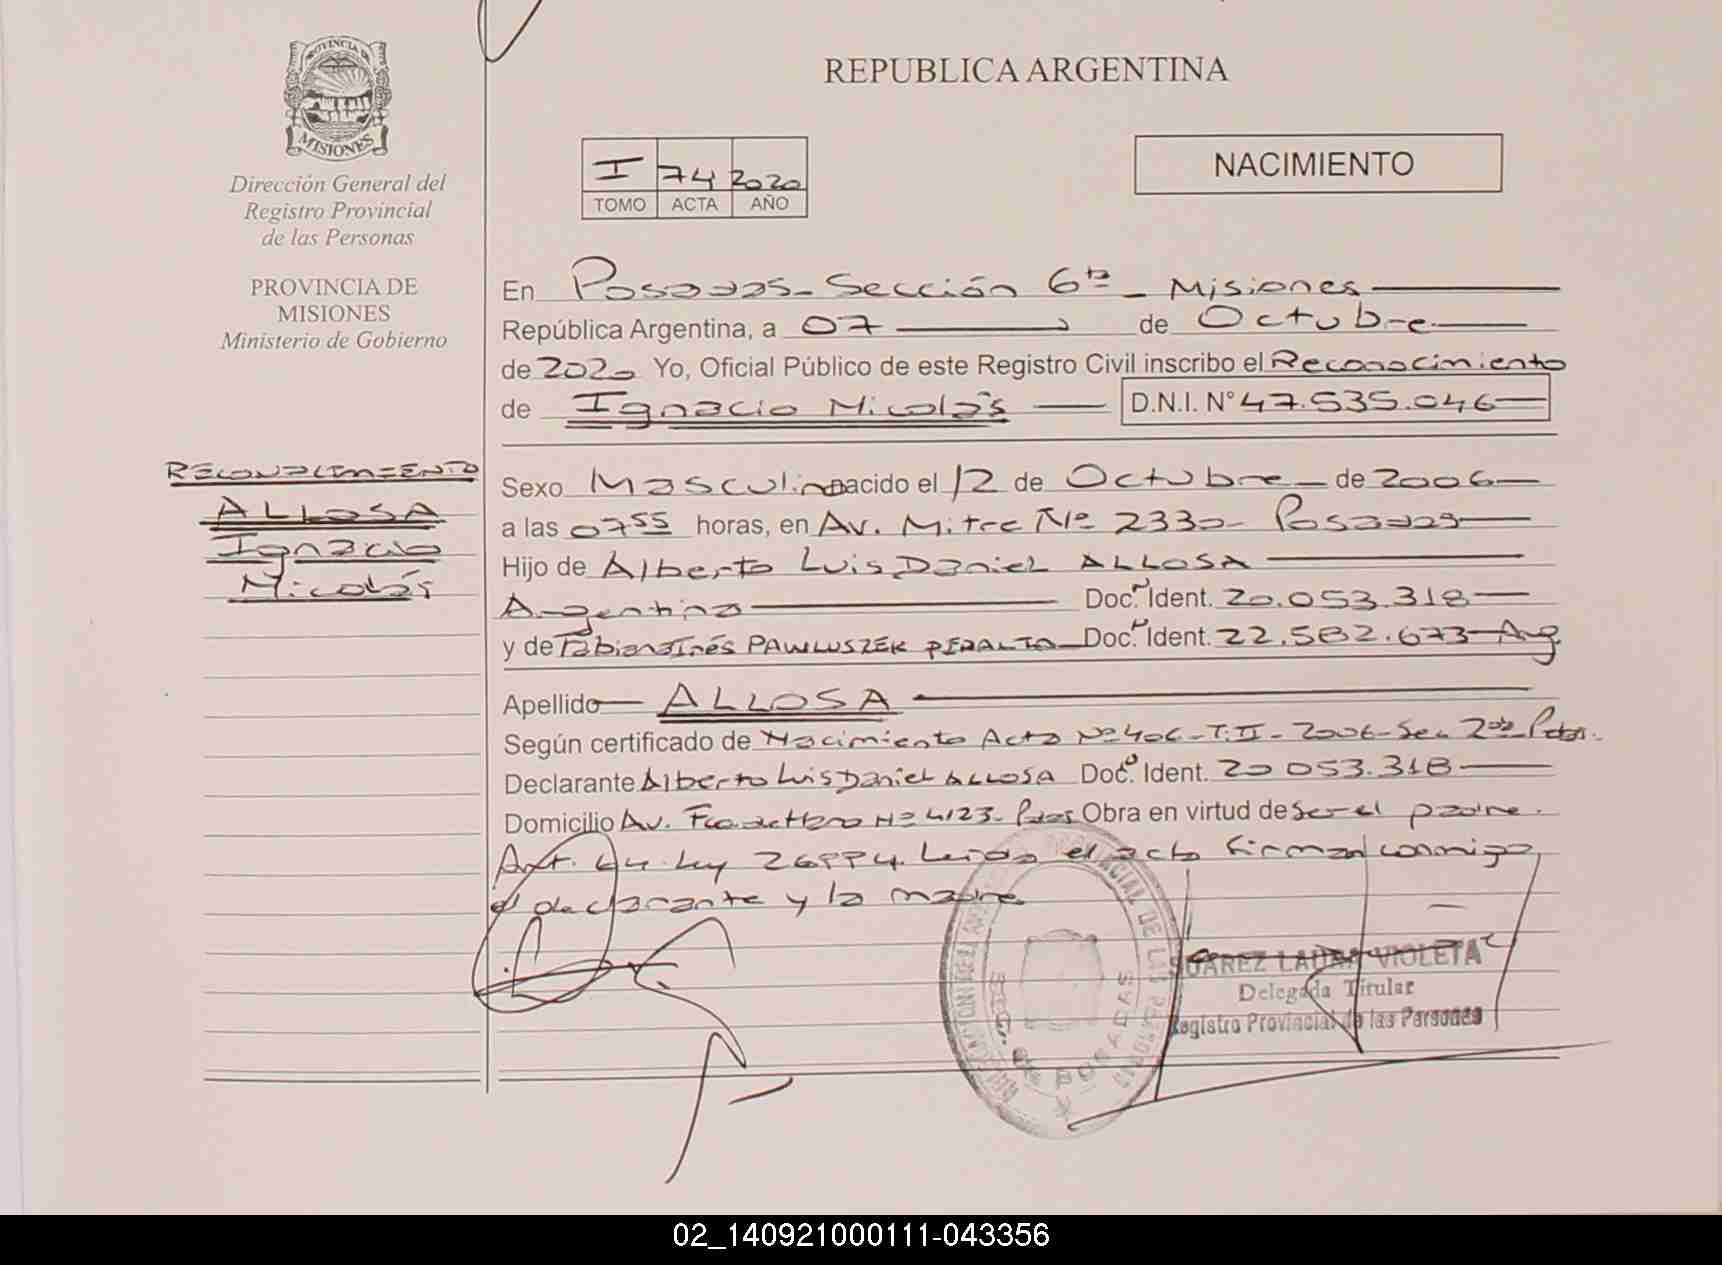 PROVINCIA DE
MISIONES
Dirección General del
Registro Provincial
de las Personas
PROVINCIA DE
MISIONES
Ministerio de Gobierno
RECONOCIMIENTO
ALLOSA
Ignacio
Nicolás
REPUBLICA ARGENTINA
I 74 2020
TOMO ACTA AÑO
NACIMIENTO
En Posadas - Sección 6ta - Misiones
República Argentina, a 07 de Octubre
de 2020 Yo, Oficial Público de este Registro Civil inscribo el Reconocimiento
de Ignacio Nicolás D.N.I. N° 47.535.046
Sexo Masculino nacido el 12 de Octubre de 2006
a las 07 55 horas, en Av. Mitre Nº 2330 - Posadas
Hijo de Alberto Luis Daniel ALLOSA
Argentina Doc. Ident. 20.053.318
y de Fabiana Inés PAWLUSZEK PERALTA Doc. Ident. 22.582.673 Arg
Apellido ALLOSA
Según certificado de Nacimiento Acta Nº 406 - T. II - 2006 - Sec 2da Pdas.
Declarante Alberto Luis Daniel ALLOSA Doc. Ident. 20 053.318
Domicilio Av. Fco de Haro Nº 4123 - Pdas Obra en virtud de ser el padre.
Art. 64 Ley 26994. Leída el acta firman conmigo
el declarante y la madre
SEC. 6ta POSADAS
SUAREZ LAURA VIOLETA
Delegada Titular
Registro Provincial de las Personas
02_140921000111-043356